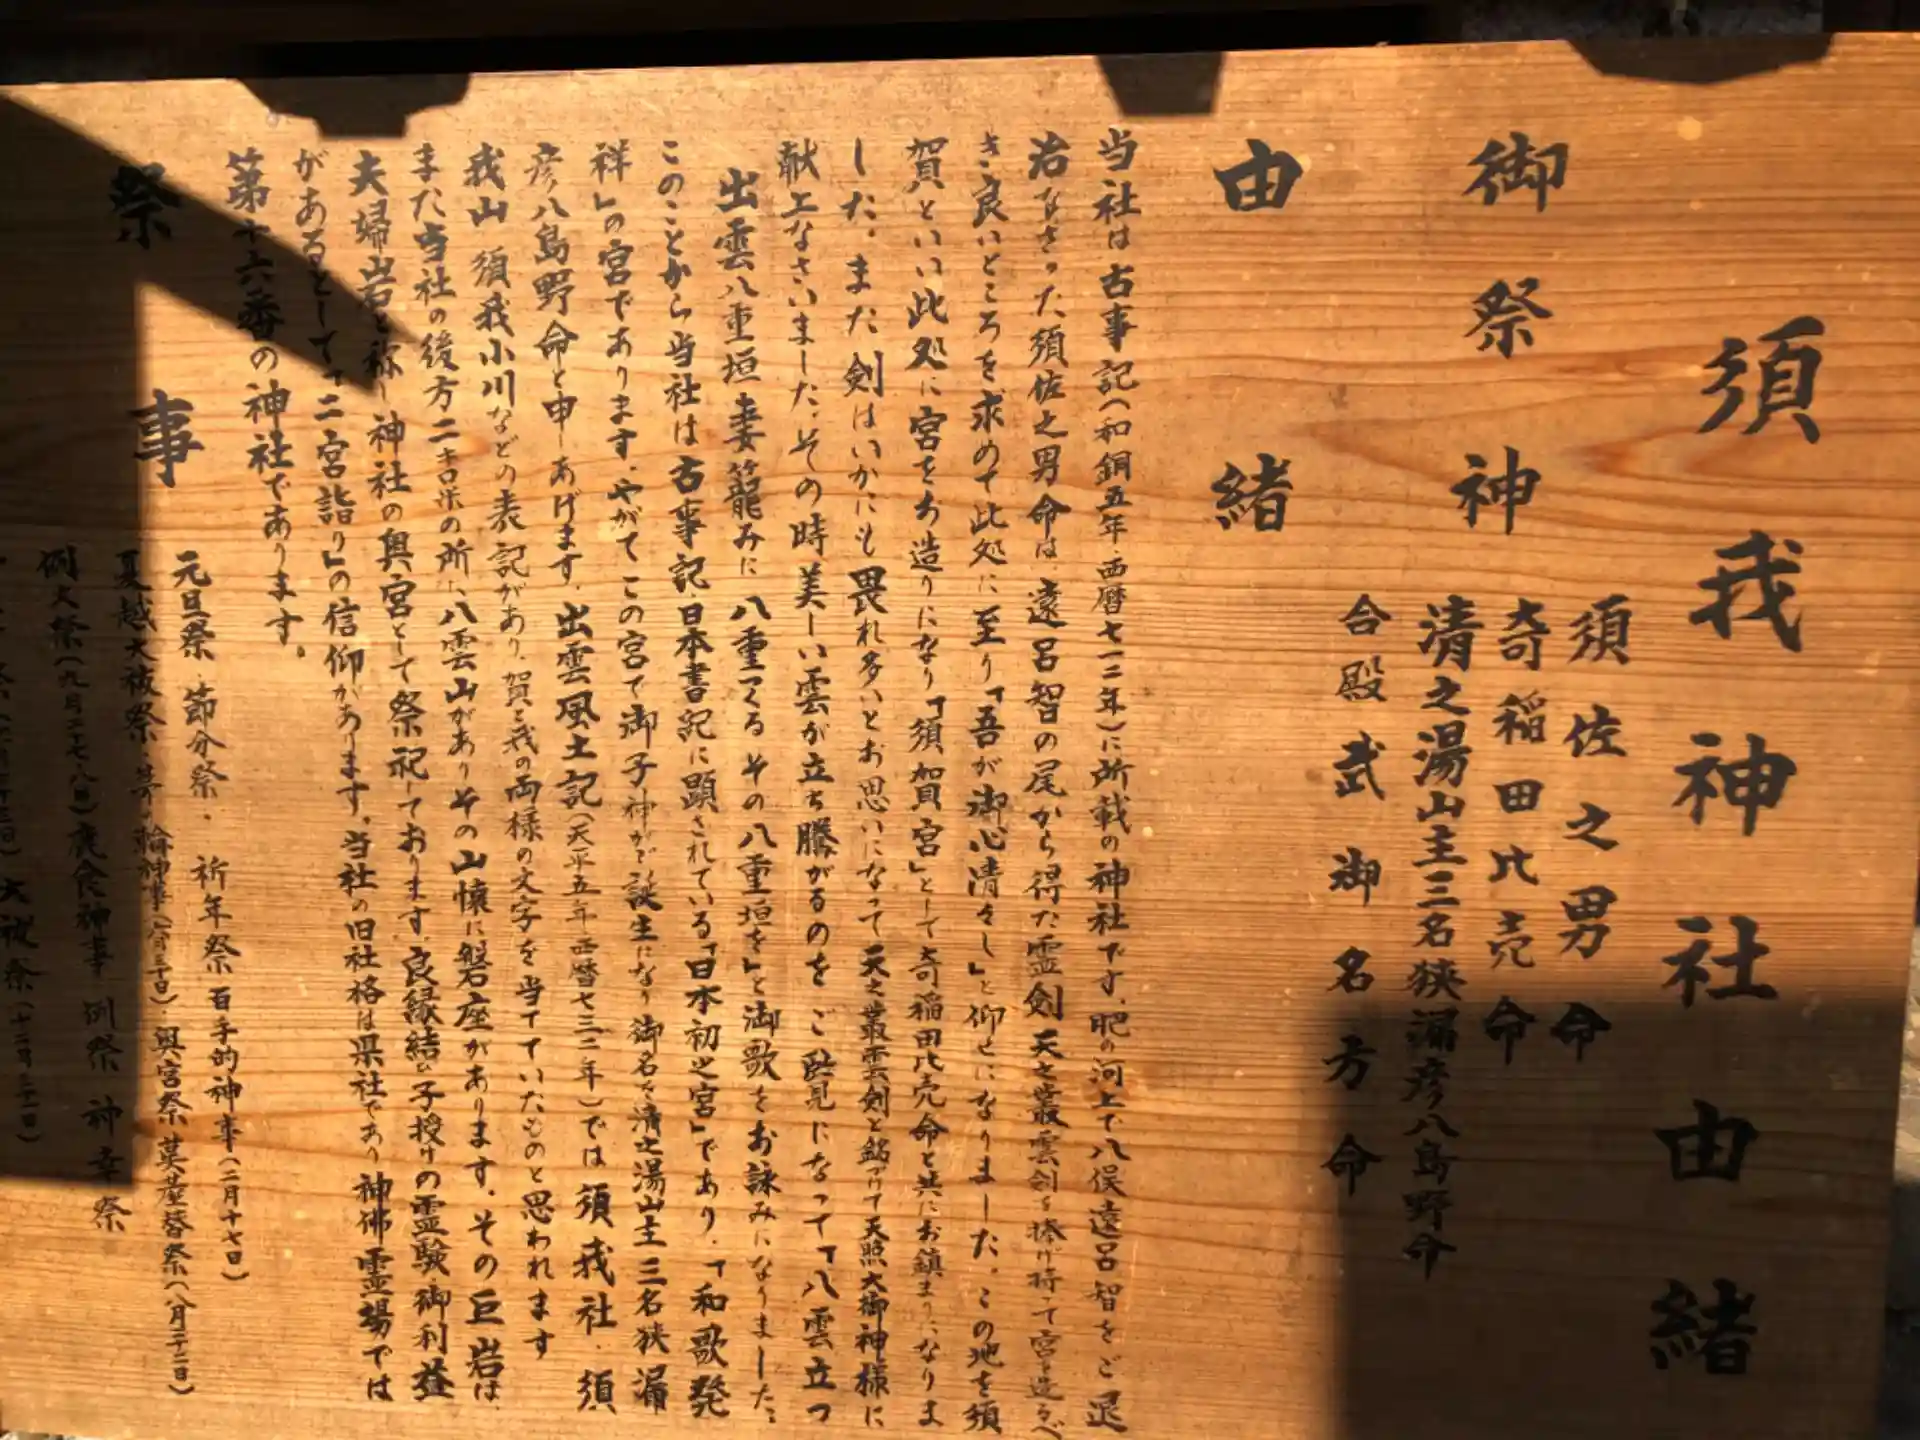 須我神社由緒
御祭神
須佐之男命
奇稲田比売命
清之湯山主三名狭漏彦八島野命
合殿武御名方命
由緒
当社は古事記(和銅五年・西暦七一二年)に所載の神社です。肥の河上で八俣遠呂智をご退
治なさった須佐之男命は、遠呂智の尾から得た霊剣天之叢雲剣を捧げ持って宮を造るべ
き良いところを求めて此処に至り「吾が御心清々し」と仰せになりました。この地を須
賀といい此処に宮をお造りになり「須賀宮」として奇稲田比売命と共にお鎮まりになりま
した。また剣はいかにも畏れ多いとお思いになって天之叢雲剣と銘づけて天照大御神様に
献上なさいました。その時、美しい雲が立ち騰がるのをご覧になって「八雲立つ
出雲八重垣 妻籠みに 八重つくる その八重垣を」と御歌をお詠みになりました。
このことから当社は古事記・日本書記に顕されている「日本初之宮」であり、「和歌発
祥」の宮であります。やがてこの宮で御子神がご誕生になり御名を清之湯山主三名狭漏
彦八島野命と申しあげます。出雲風土記(天平五年西暦七三三年)では須我社・須
我山 須我小川などの表記があり、賀と我の両様の文字を当てていたものと思われます
また当社の後方二キロ米の所に八雲山がありその山懐に磐座があります。その巨岩は、
夫婦岩と称し神社の奥宮として祭祀しております。良縁結び子授けの霊験・御利益
があるとして「二宮詣り」の信仰があります。当社の旧社格は県社であり神佛霊場では
第十六番の神社であります。
祭事
元旦祭・節分祭・祈年祭百手的神事(二月十七日)
夏越大祓祭・茅の輪神事(六月三十日)・奥宮祭茣蓙替祭(八月二十二日)
例大祭(九月二十七八日)鹿食神事 例祭 神幸祭
大祓祭(十二月三十一日)